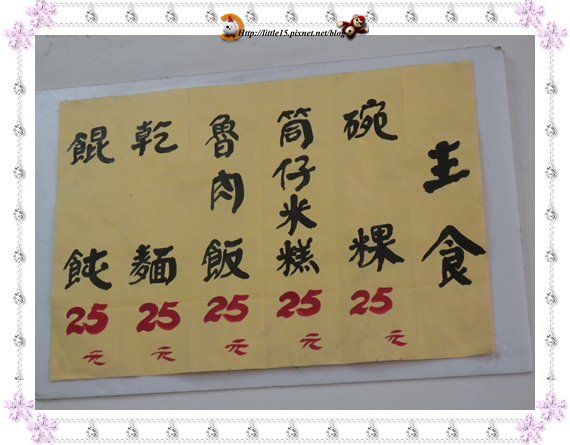 Http://little15.pixnet.net/blog
主食
碗粿 25元
筒仔米糕 25元
魯肉飯 25元
乾麵 25元
餛飩 25元